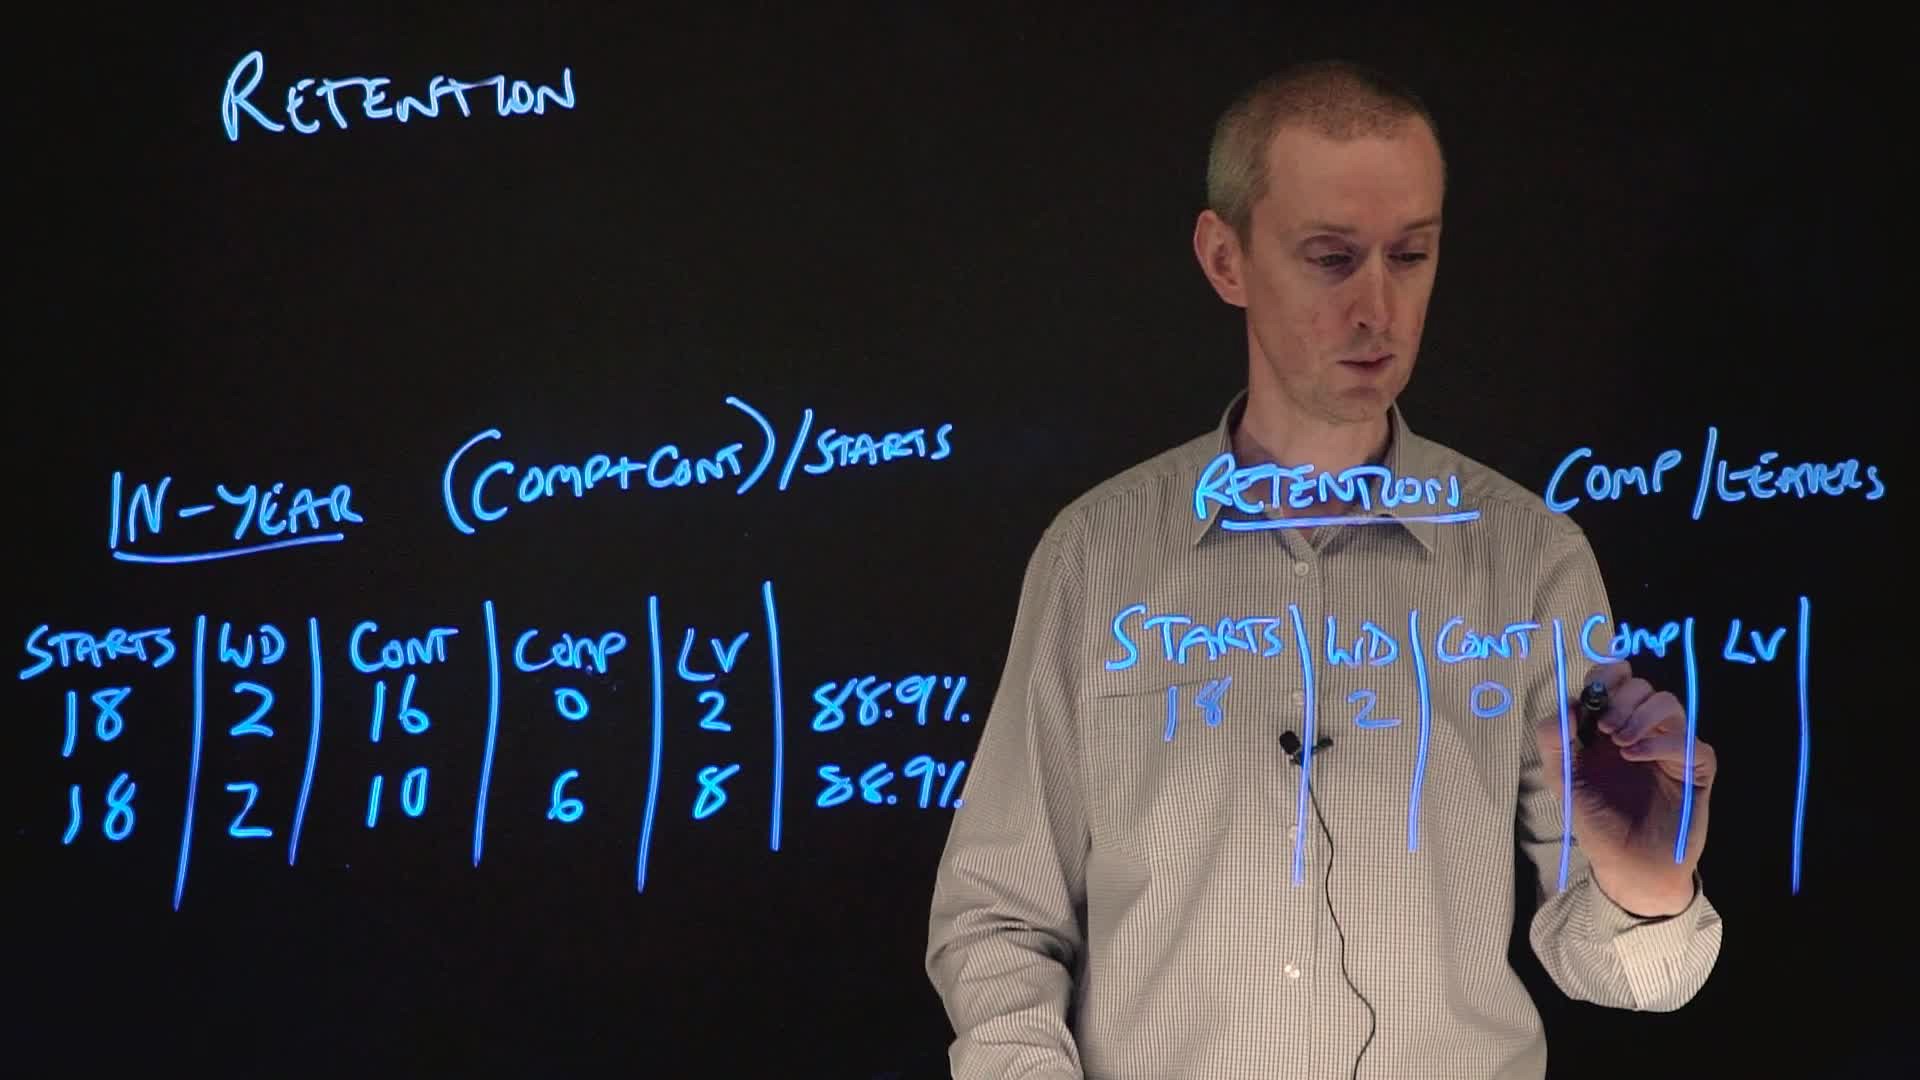 RETENTION
IN-YEAR (COMP+CONT)/STARTS
STARTS WD CONT COMP LV
18 2 16 0 2 88.9%
18 2 10 6 8 88.9%
RETENTION COMP/LEAVERS
STARTS WD CONT COMP LV
18 2 0